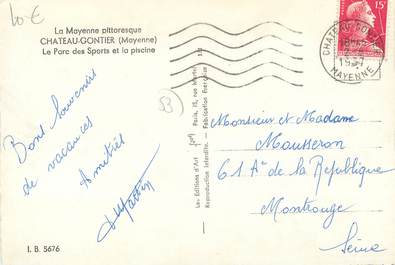 10 €
La Mayenne pittoresque
CHATEAU-GONTIER (Mayenne)
Le Parc des Sports et la piscine
15F
MAYENNE
53
Bons Souvenirs
de vacances
Amitiés
Les Editions d'Art
Paris, 15, rue Martel
Reproduction Interdite. - Fabrication Française
Monsieur et Madame
Mousseron
61 Av de la République
Montrouge
Seine
I. B. 5676